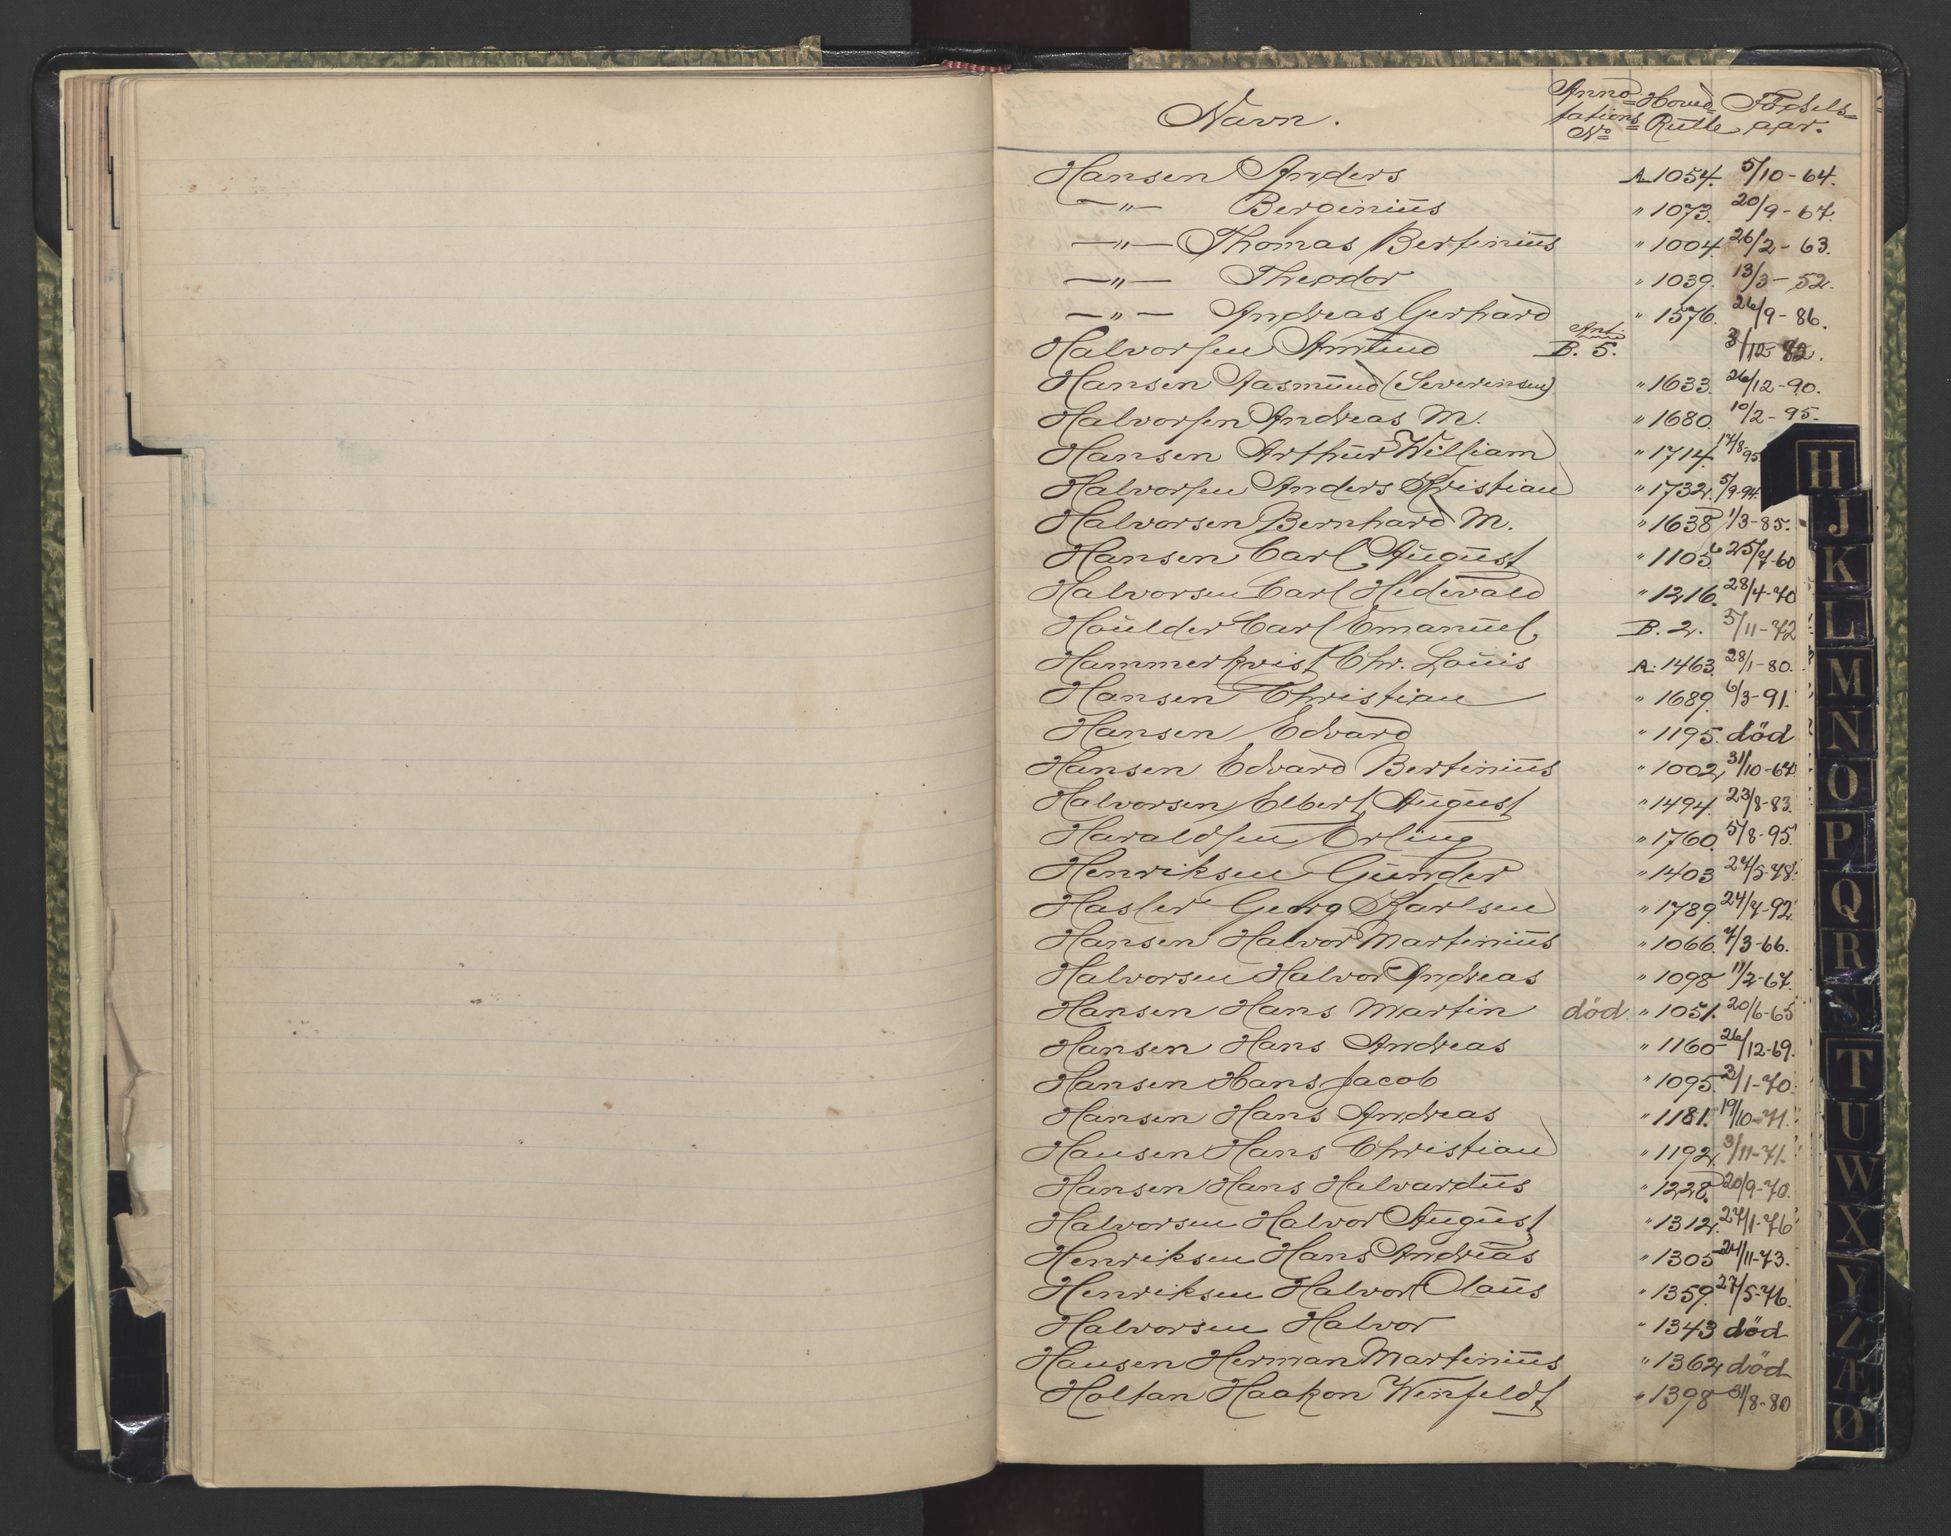 Navn. Anno= tations= No Hoved= Rulle Fødsels= aar.
Hansen Anders A 1054. 5/10-64.
—„— Berginius „ 1073. 20/9-67.
—„— Thomas Bertinius „ 1004. 26/2-63.
—„— Theodor „ 1039. 13/3-52.
—„— Andreas Gerhard „ 1576. 26/9-86.
Halvorsen Amund B. 5. 3/12-82.
Hansen Aasmund (Severinsen) „ 1633. 26/12-90.
Halvorsen Andreas M. „ 1680. 10/2-95.
Hansen Arthur William „ 1714. 17/8-95
Halvorsen Anders Kristian „ 1732. 5/9-94.
Halvorsen Bernhard M. „ 1638 1/3-85.
Hansen Carl August „ 1105. 25/7-60
Halvorsen Carl Hidevald „ 1216. 28/4-70
Houlder Carl Emanuel B. 2. 5/11-72
Hammerkvist Chr. Louis A. 1463. 28/1-80.
Hansen Christian „ 1689. 6/3-91.
Hansen Edvard „ 1195. död
Hansen Edvard Bertinius „ 1002. 31/10-67.
Halvorsen Elbert August „ 1494. 23/8-83.
Haraldsen Erling „ 1760. 5/8-95.
Henriksen Gunder „ 1403 27/5-78.
Hasler Georg Karlsen „ 1789. 24/7-92.
Hansen Halvor Martinius „ 1066. 7/3-66.
Halvorsen Halvor Andreas „ 1098 11/2-67.
Hansen Hans Martin död. „ 1051. 20/6-65
Hansen Hans Andreas „ 1160 26/12-69.
Hansen Hans Jacob „ 1095. 3/1-70.
Hansen Hans Andreas „ 1181. 19/10-71.
Hansen Hans Christian „ 1192. 3/11-71.
Hansen Hans Halvardus „ 1228. 20/9-70.
Halvorsen Halvor August „ 1312. 27/1-76
Henriksen Hans Andreas „ 1305 24/11-73.
Henriksen Halvor Olaus „ 1359. 27/5-76.
Halvorsen Halvor „ 1343 död
Hansen Herman Martinius „ 1362 död
Holtan Haakon Winfeldt „ 1398 31/8-80
H
J
K
L
M
N
O
P
Q
R
S
T
U
W
X
Y
Z
Æ
Ø